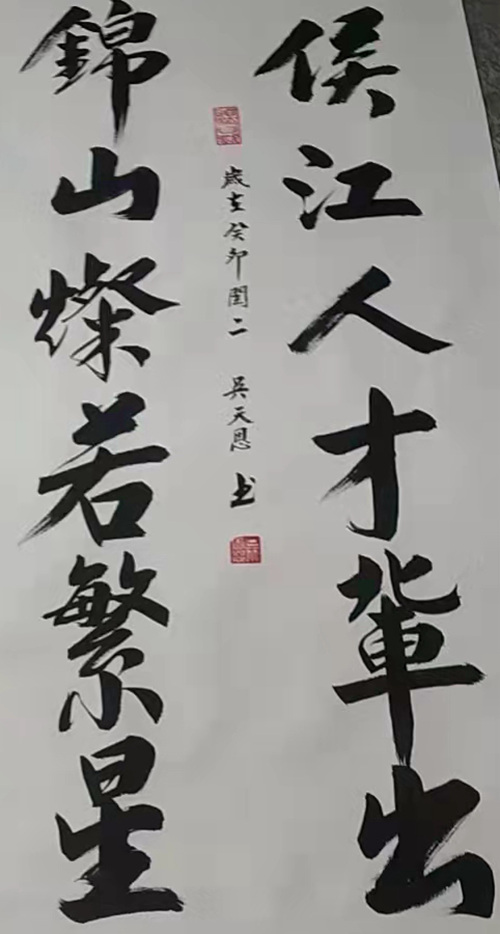 侯江人才輩出
錦山燦若繁星
歲在癸卯閏二 吴天恩 书